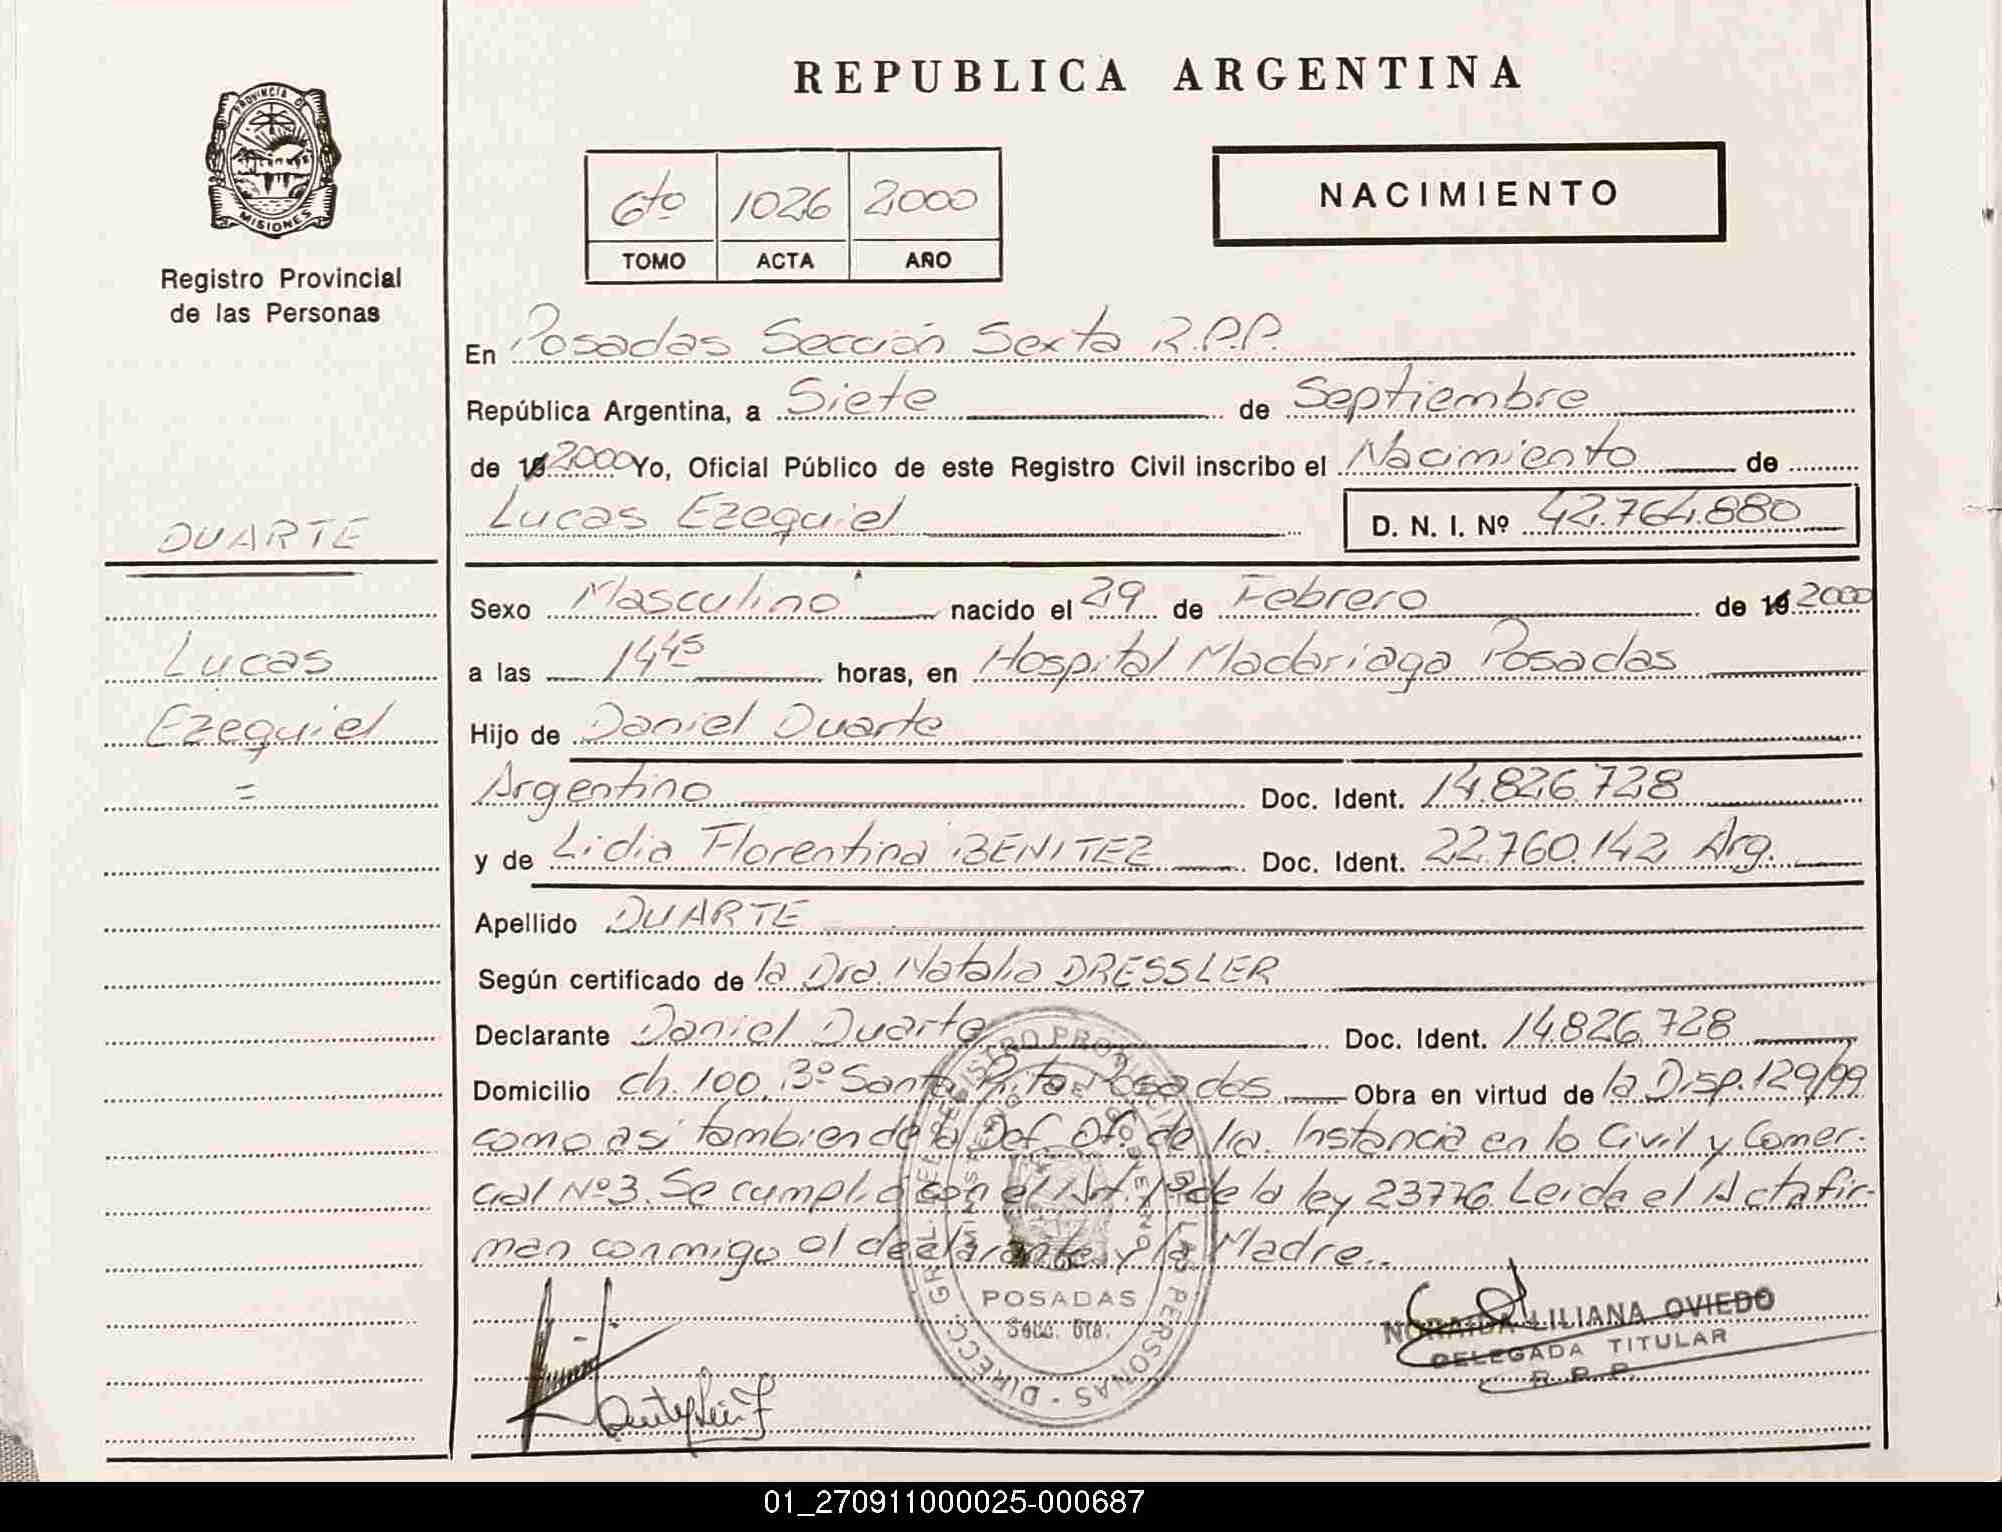 REPUBLICA ARGENTINA
PROVINCIA DE
MISIONES
Registro Provincial
de las Personas
6to 1026 2000
TOMO ACTA AÑO
NACIMIENTO
En Posadas Sección Sexta R.P.P.
República Argentina, a Siete de Septiembre
de 19 2000 Yo, Oficial Público de este Registro Civil inscribo el Nacimiento de
Lucas Ezequiel D. N. I. Nº 42.764.880
DUARTE
Lucas
Ezequiel
=
Sexo Masculino nacido el 29 de Febrero de 19 2000
a las 14 45 horas, en Hospital Madariaga Posadas
Hijo de Daniel Duarte
Argentino Doc. Ident. 14.826.728
y de Lidia Florentina BENITEZ Doc. Ident. 22.760.142 Arg.
Apellido DUARTE
Según certificado de la Dra. Natalia DRESSLER
Declarante Daniel Duarte Doc. Ident. 14.826.728
Domicilio ch. 100, 3º Santa Rita Posadas Obra en virtud de la Disp. 129/99
como asi tambien de la Def. Of. de 1ra. Instancia en lo Civil y Comer-
cial Nº 3. Se cumplió con el Art. 1º de la ley 23776. Leida el Acta fir-
man conmigo el declarante y la Madre..
DIRECC. GRAL. DEL REGISTRO PROVINCIAL DE LAS PERSONAS
MINISTERIO DE GOBIERNO
POSADAS
Secc. 6ta.
NORAIDA LILIANA OVIEDO
DELEGADA TITULAR
R. P. P.
01_270911000025-000687